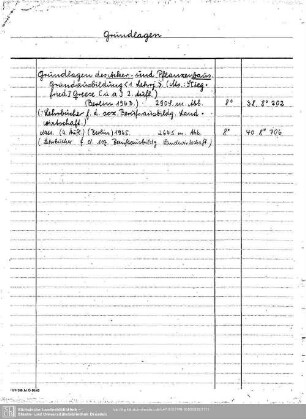 Grundlagen
Grundlagen des Acker- und Pflanzenbaus.
Grundausbildung (1. Lehrj.). (Ms.: Sieg-
fried) Greese (u. a.) 3. Aufl.)
(Berlin 1963.) 290 S. m. Abb. 8° 38. 8° 202
(Lehrbücher f. d. soz. Berufsausbildg. Land-
wirtschaft.)
dass. (4. Aufl.) (Berlin) 1965. 264 S. m. Abb. 8° 40. 8° 706
(Lehrbücher f. d. soz. Berufsausbildg. Landwirtschaft)
Sächsische Landesbibliothek -
Staats- und Universitätsbibliothek Dresden